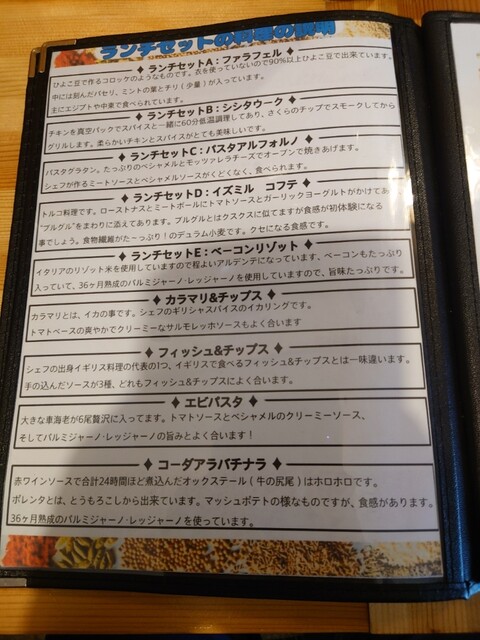 ランチセットの料理の説明
♦ ランチセットA：ファラフェル ♦
ひよこ豆で作るコロッケのようなものです。衣を使っていないので90%以上ひよこ豆で出来ています。
中には刻んだパセリ、ミントの葉とチリ(少量)が入っています。
主にエジプトや中東で食べられています。
♦ ランチセットB：シシタウーク ♦
チキンを真空パックでスパイスと一緒に60分低温調理してあり、さくらのチップでスモークしてから
グリルします。柔らかいチキンとスパイスがとても美味しいです。
♦ ランチセットC：パスタアルフォルノ ♦
パスタグラタン。たっぷりのベシャメルとモッツァレラチーズでオーブンで焼きあげます。
シェフが作るミートソースとベシャメルソースがくどくなく、食べられます。
♦ ランチセットD：イズミル　コフテ ♦
トルコ料理です。ローストナスとミートボールにトマトソースとガーリックヨーグルトがかけてあ
"ブルグル"をまわりに添えてあります。ブルグルとはクスクスに似てますが食感が初体験になる
事でしょう。食物繊維がた～っぷり！のデュラム小麦です。クセになる食感です。
♦ ランチセットE：ベーコンリゾット ♦
イタリアのリゾット米を使用していますので程よいアルデンテになっています、ベーコンもたっぷり
入っていて、36ヶ月熟成のパルミジャーノ・レッジャーノを使用していますので、旨味たっぷりです。
♦ カラマリ&チップス ♦
カラマリとは、イカの事です。シェフのギリシャスパイスのイカリングです。
トマトベースの爽やかでクリーミーなサルモレッホソースもよく合います
♦ フィッシュ&チップス ♦
シェフの出身イギリス料理の代表の1つ、イギリスで食べるフィッシュ&チップスとは一味違います。
手の込んだソースが3種、どれもフィッシュ&チップスによく合います。
♦ エビパスタ ♦
大きな車海老が6尾贅沢に入ってます。トマトソースとベシャメルのクリーミーソース、
そしてパルミジャーノ・レッジャーノの旨みとよく合います！
♦ コーダアラバチナラ ♦
赤ワインソースで合計24時間ほど煮込んだオックステール(牛の尻尾)はホロホロです。
ポレンタとは、とうもろこしから出来ています。マッシュポテトの様なものですが、食感があります。
36ヶ月熟成のパルミジャーノ・レッジャーノを使っています。